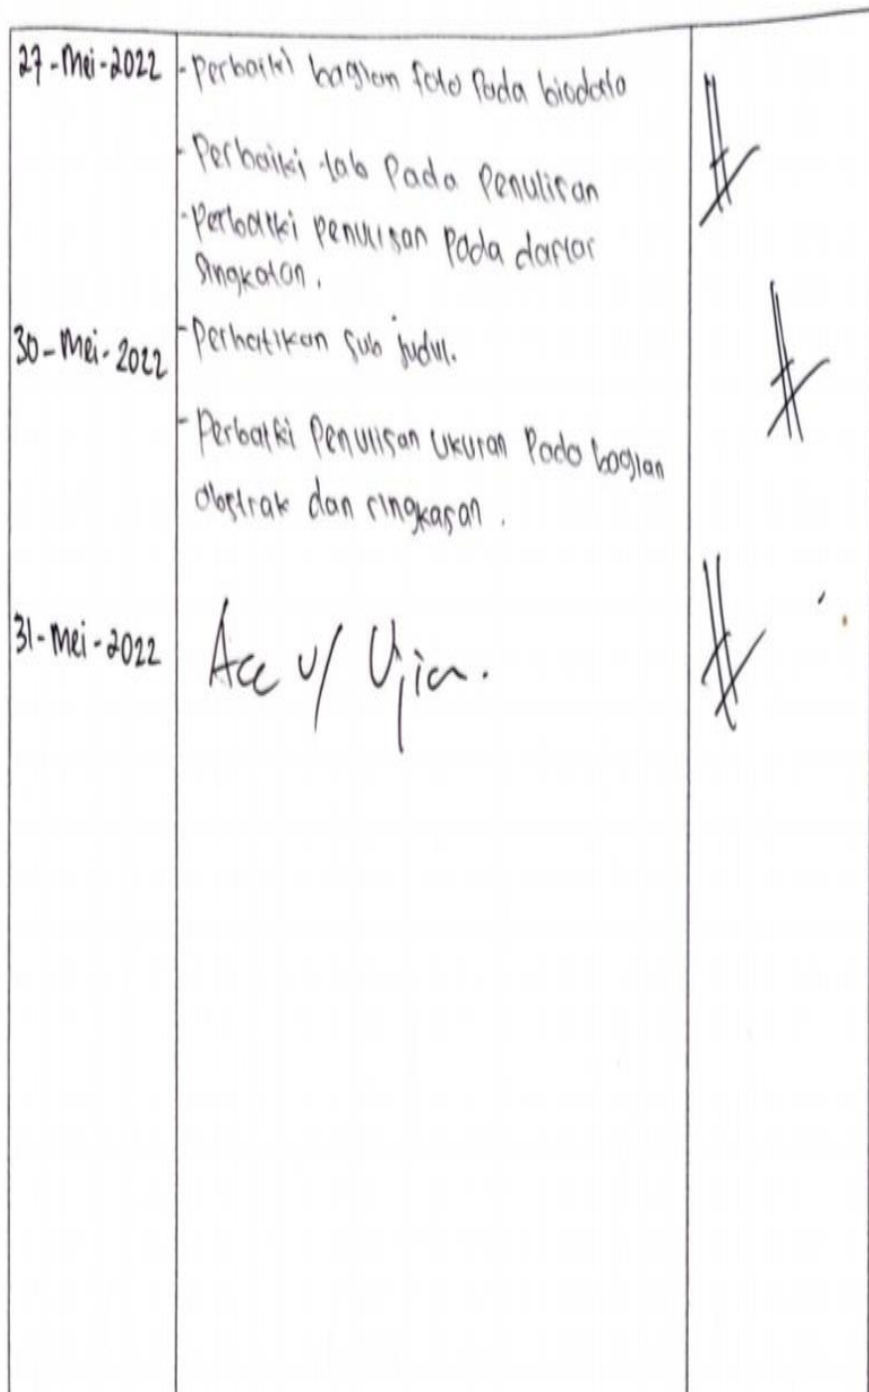 27-Mei-2022
- Perbaiki bagian foto Pada biodata
- Perbaiki tab Pada Penulisan
- Perbaiki penulisan Pada daftar
Singkatan.
30-Mei-2022
- Perhatikan Sub judul.
- Perbaiki Penulisan Ukuran Pada bagian
abstrak dan ringkasan.
31-Mei-2022
Acc U/ Ujian.